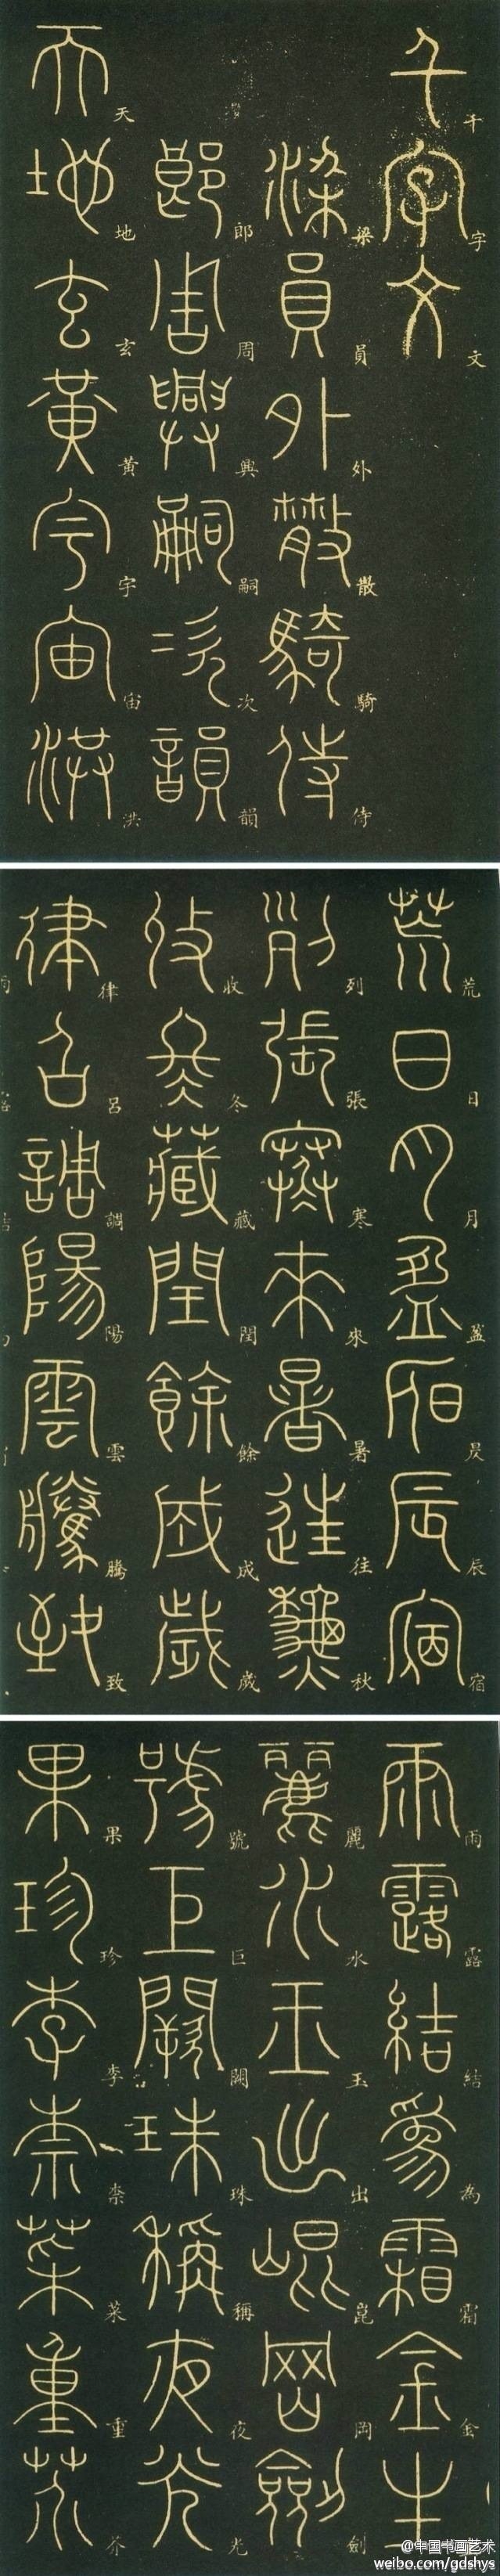 千字文
梁員外散騎侍
郎周興嗣次韻
天地玄黃宇宙洪
荒日月盈昃辰宿
列張寒來暑往秋
收冬藏閏餘成歲
律呂調陽雲騰致
雨露結為霜金生
麗水玉出崑岡劍
號巨闕珠稱夜光
果珍李柰菜重芥
@中国书画艺术
weibo.com/gdshys